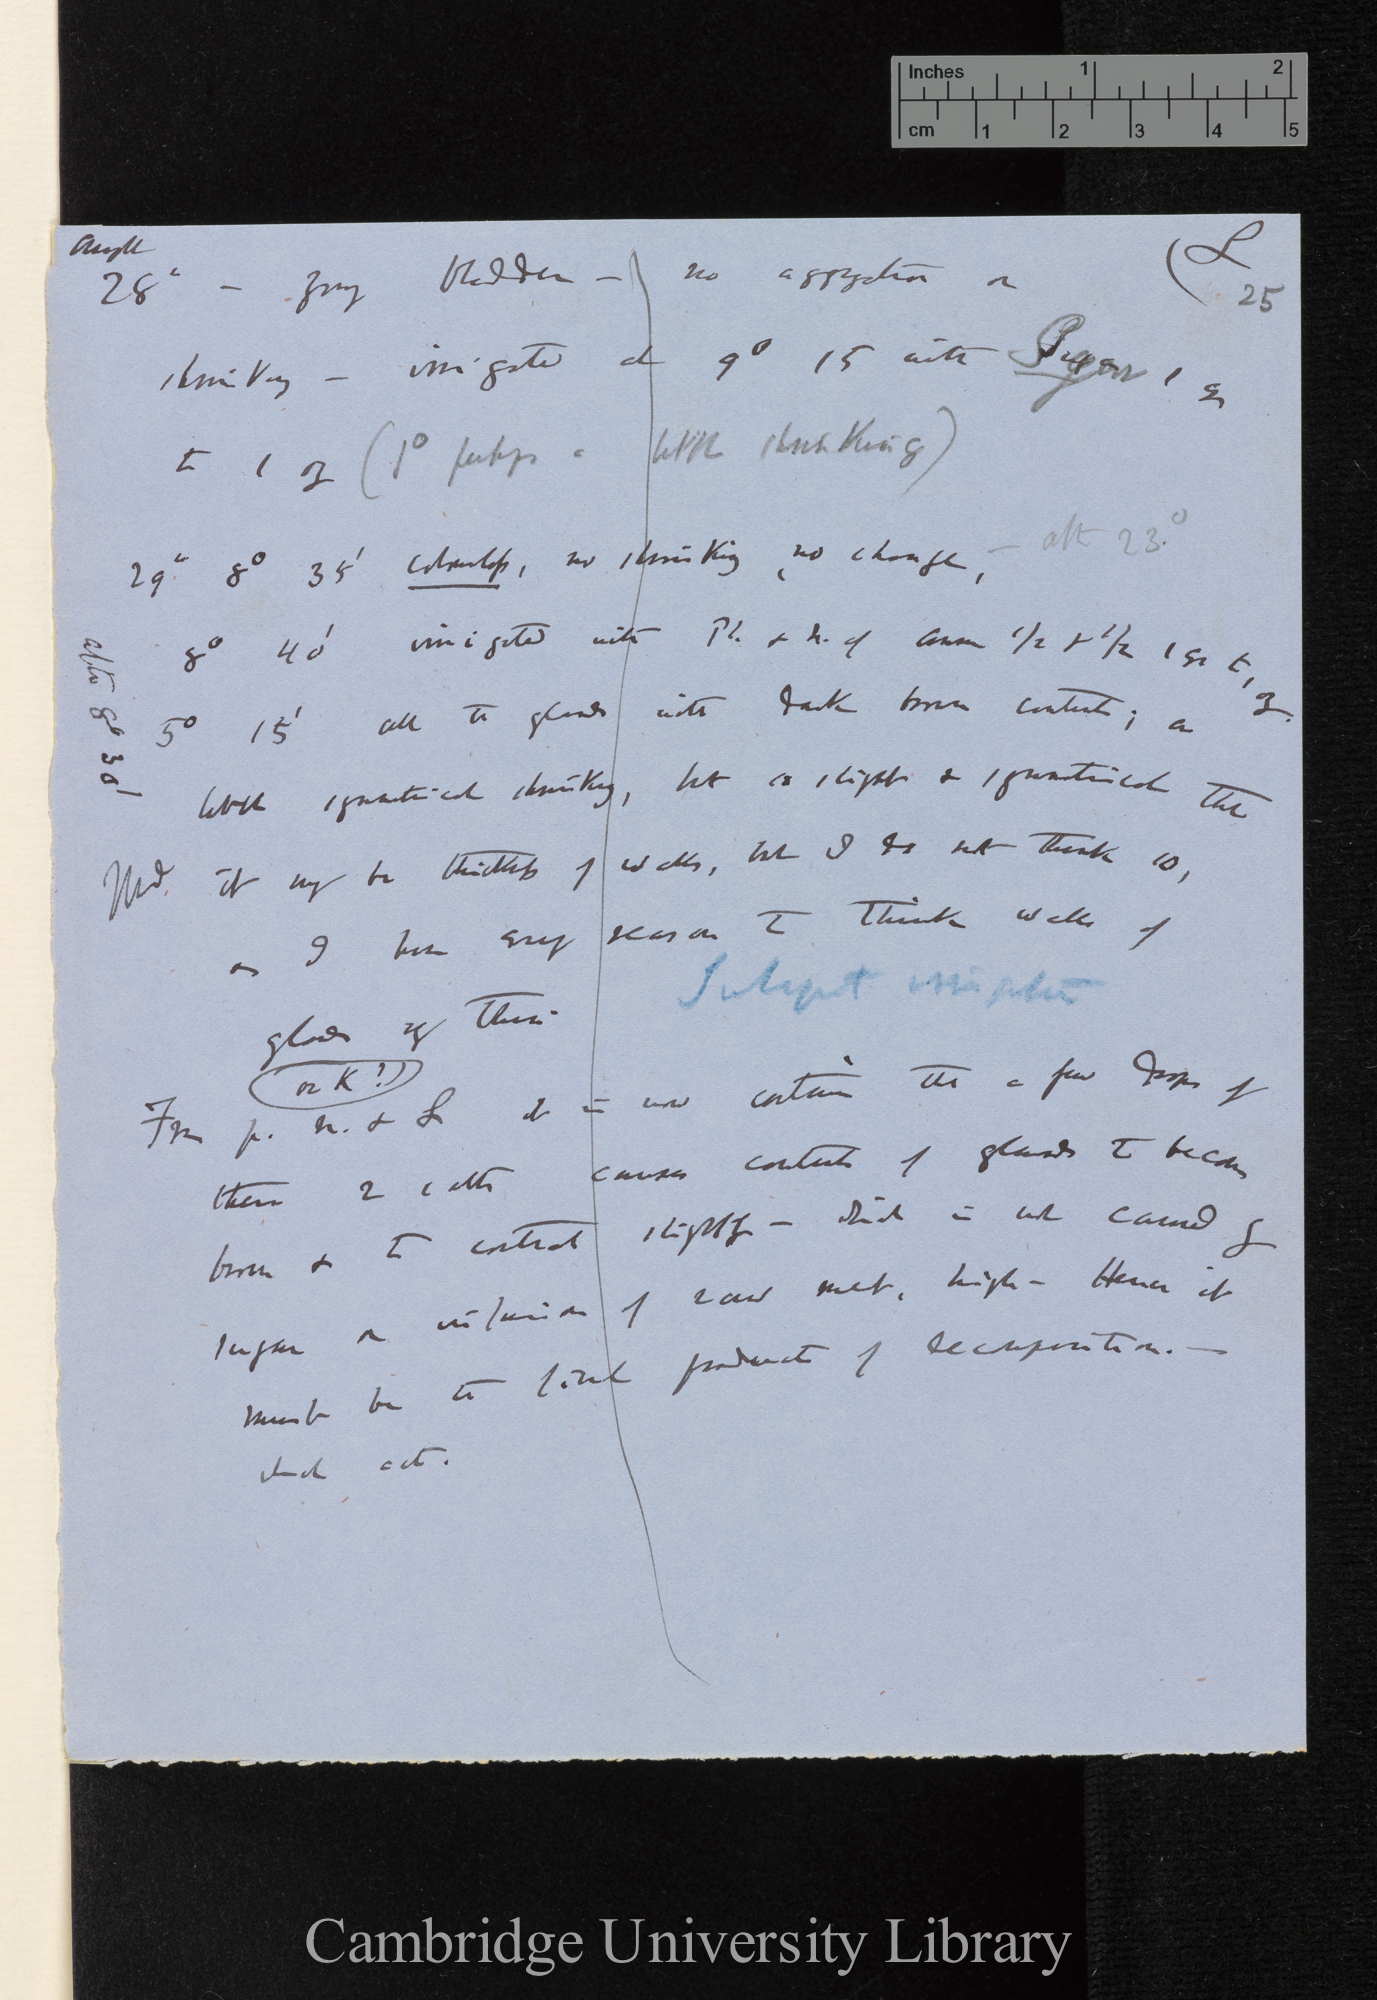 Inches 1 2
cm 1 2 3 4 5
(L
25
28th – young bladder – no aggregation or
shrinking – irrigated at 9° 15 with Sugar 1 gr
to 1 oz (1° perhaps a little shrinking)
29th 8° 35' colourless, no shrinking, no change, – after 23°.
8° 40' irrigated with Ph. & N. of amm 1/2 & 1/2 1 gr to 1 oz.
after 8° 30'
5° 15' all the glands with dark brown contents; a
little symmetrical shrinking, but so slight & symmetrical that
it may be thickness of walls, but I do not think so,
as I have every reason to think walls of
glands very thin
Subsequent irrigation
(or K!)
From p. N. & L it is now certain that a few drops of
these 2 salts causes contents of glands to become
brown & to contract slightly – which is not caused by
sugar or infusion of raw meat, high – Hence it
must be the final products of decomposition. –
which act.
Cambridge University Library